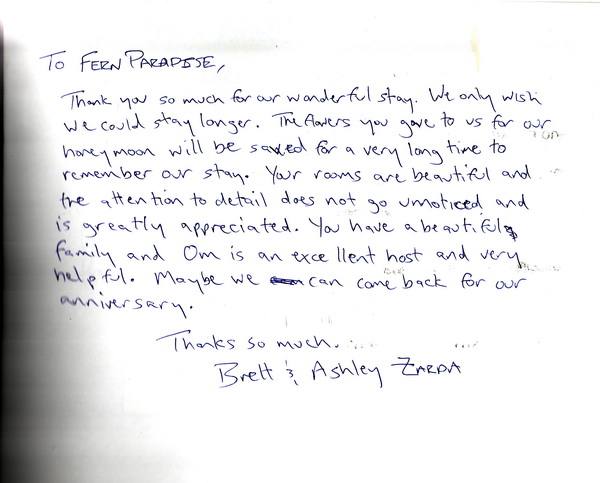 To FERN PARADISE,
Thank you so much for our wonderful stay. We only wish
we could stay longer. The flowers you gave to us for our
honeymoon will be saved for a very long time to
remember our stay. Your rooms are beautiful and
the attention to detail does not go unnoticed and
is greatly appreciated. You have a beautiful
family and Om is an excellent host and very
helpful. Maybe we can come back for our
anniversary.
Thanks so much.
Brett & Ashley ZARDA